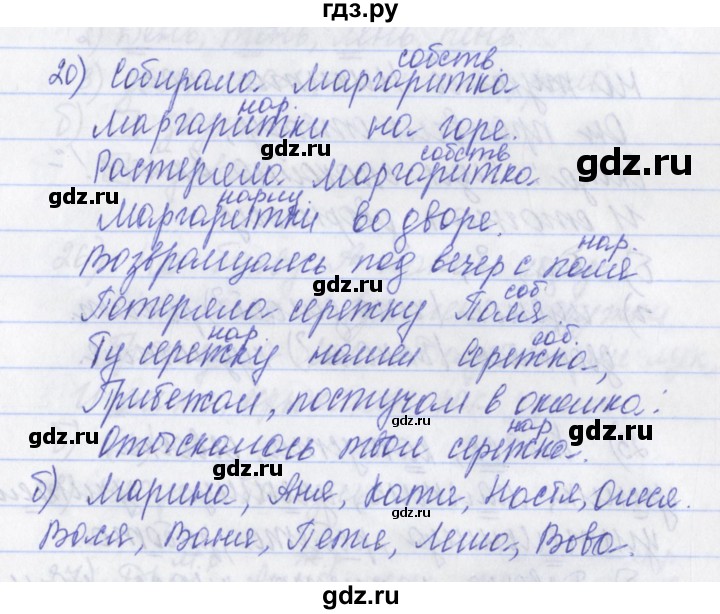 гдз.ру
собств.
20) Собирала Маргаритка
нар.
Маргаритки на горе.
собств
Растеряла Маргаритка
нариц
Маргаритки во дворе.
нар.
Возвращаясь под вечер с поля
соб
Потеряла сережку Поля
нар. соб.
Ту сережку нашел Сережка,
Прибежал, постучал в окошко:
нар.
Отыскалась твоя сережка.
б) Марина, Аня, Катя, Настя, Олеся.
Валя, Ваня, Петя, Леша, Вова.
gdz.com
gdz.com
gdz.com
gdz.com
gdz.com
gdz.com
gdz.com
gdz.com
gdz.com
gdz.com